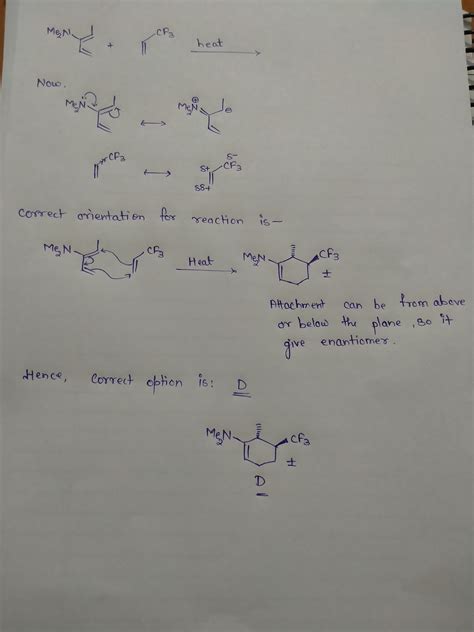 Me₂N + CF₃ heat
Now,
Me₂N: ↔ Me₂N ⊕ ⊖
CF₃ ↔ δ+ δ- CF₃
δδ+
Correct orientation for reaction is -
Me₂N CF₃ Heat Me₂N CF₃
±
Attachment can be from above
or below the plane, so it
give enantiomer.
Hence, correct option is: D
Me₂N CF₃
±
D